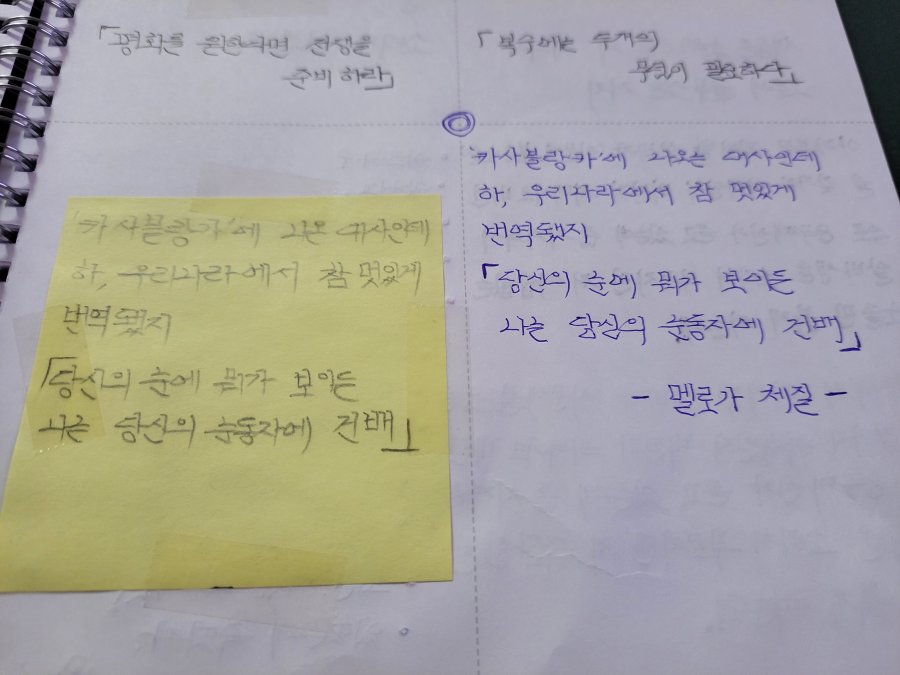 「평화를 원한다면 전쟁을
준비하라」
「복수에는 두개의
무덤이 필요하다」
'카사블랑카'에 나온 대사인데
하, 우리나라에서 참 멋있게
번역됐지
「당신의 눈에 뭐가 보이든
나는 당신의 눈동자에 건배」
'카사블랑카'에 나오는 대사인데
하, 우리나라에서 참 멋있게
번역됐지
「당신의 눈에 뭐가 보이든
나는 당신의 눈동자에 건배」
- 멜로가 체질 -